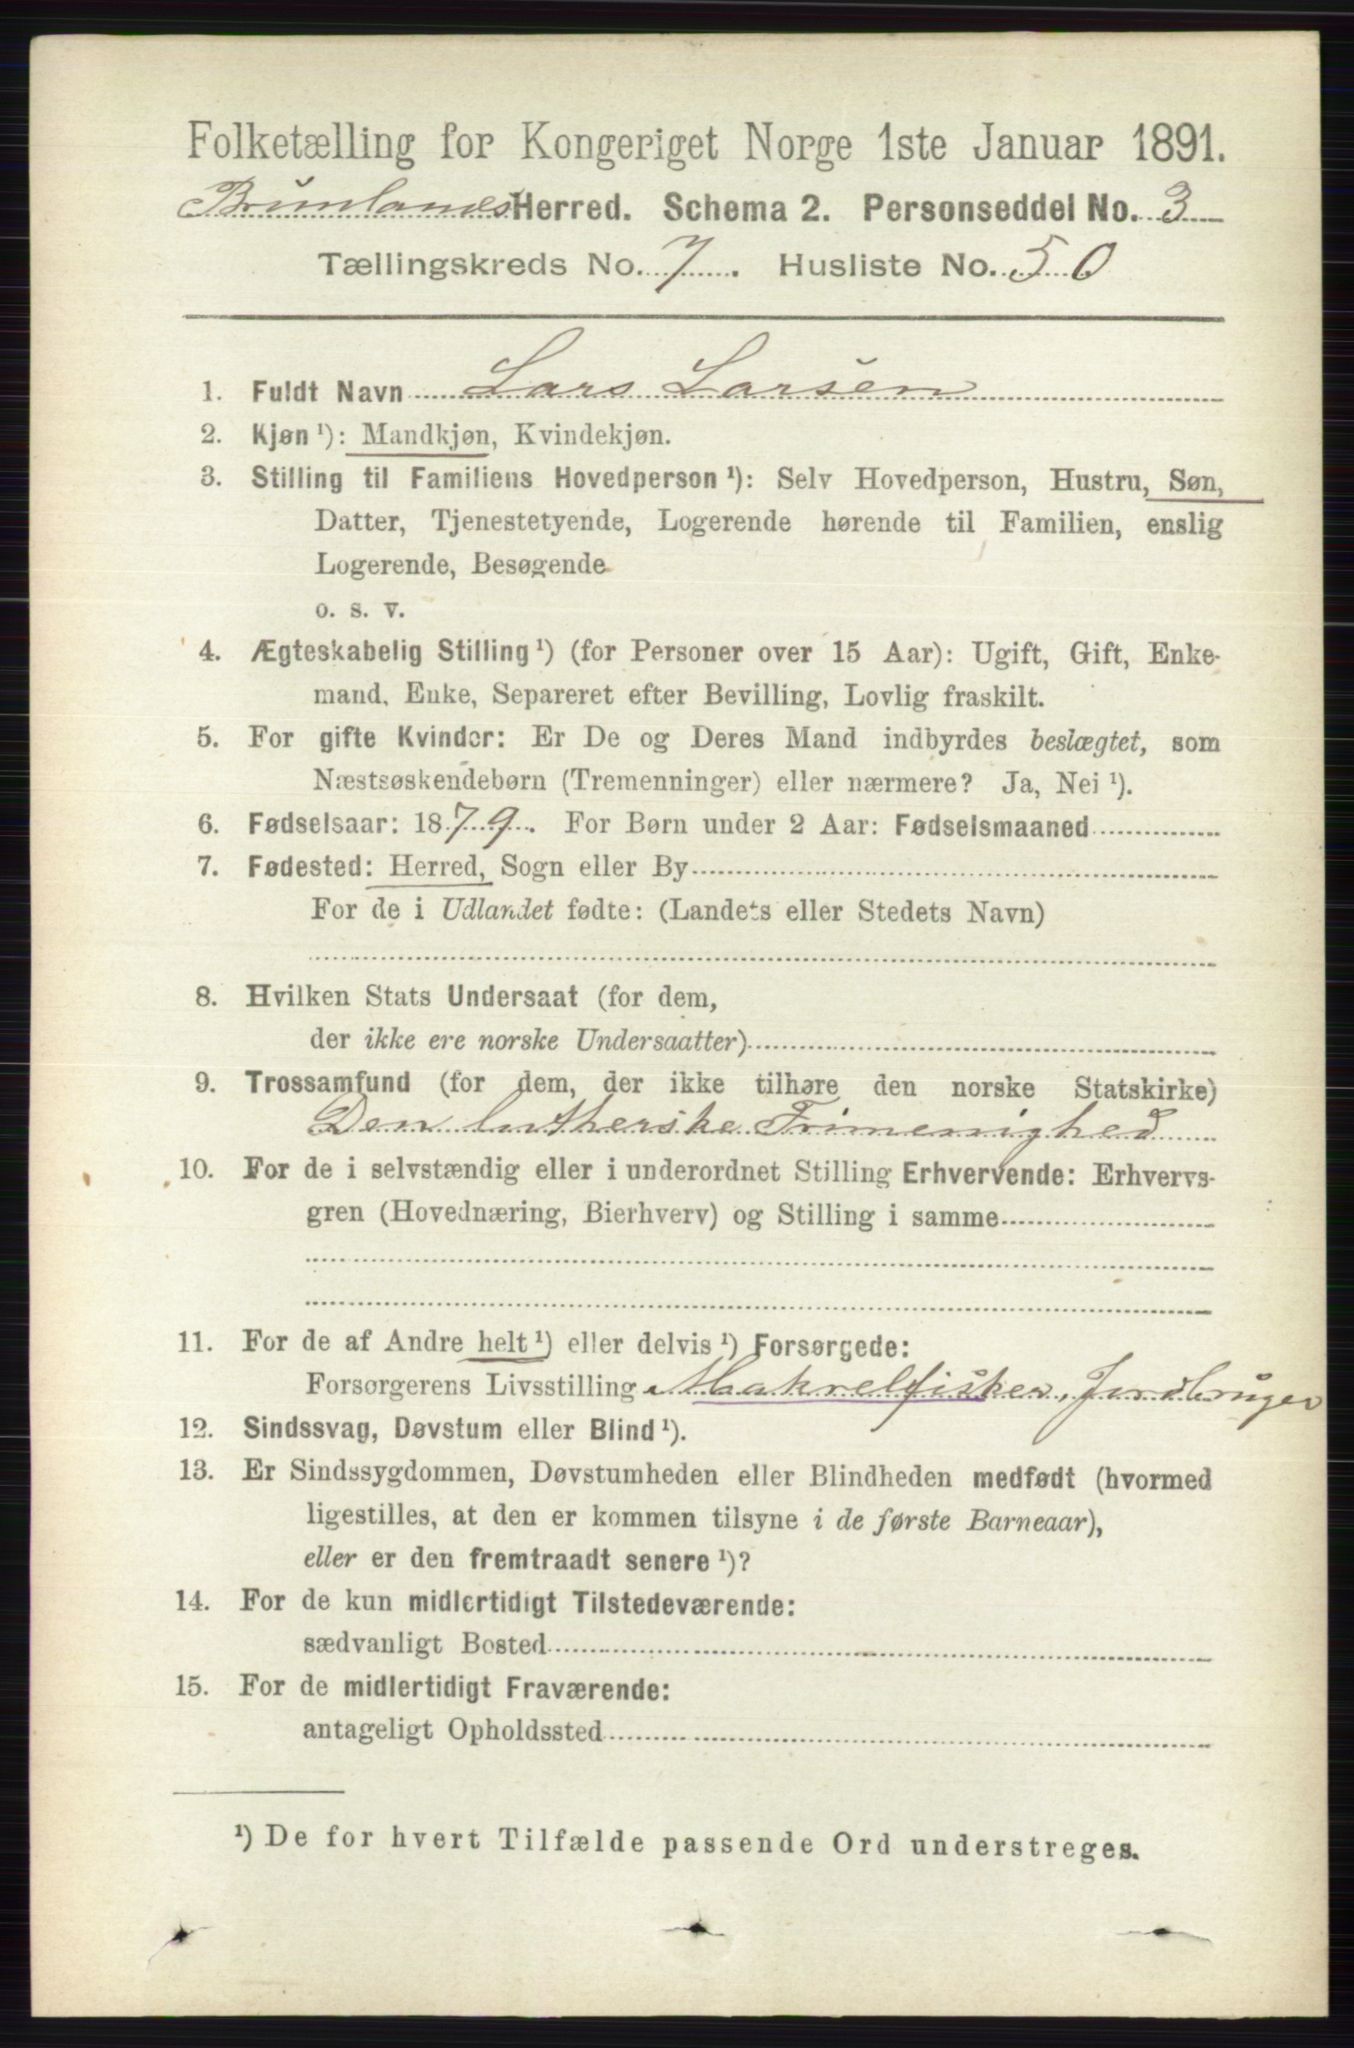 Folketælling for Kongeriget Norge 1ste Januar 1891.
Brunlanes Herred. Schema 2. Personseddel No. 3
Tællingskreds No. 7. Husliste No. 50
1. Fuldt Navn Lars Larsen
2. Kjøn ¹): Mandkjøn, Kvindekjøn.
3. Stilling til Familiens Hovedperson ¹): Selv Hovedperson, Hustru, Søn,
Datter, Tjenestetyende, Logerende hørende til Familien, enslig
Logerende, Besøgende
o. s. v.
4. Ægteskabelig Stilling ¹) (for Personer over 15 Aar): Ugift, Gift, Enke-
mand, Enke, Separeret efter Bevilling, Lovlig fraskilt.
5. For gifte Kvinder: Er De og Deres Mand indbyrdes beslægtet, som
Næstsøskendebørn (Tremenninger) eller nærmere? Ja, Nei ¹).
6. Fødselsaar: 1879. For Børn under 2 Aar: Fødselsmaaned
7. Fødested: Herred, Sogn eller By
For de i Udlandet fødte: (Landets eller Stedets Navn)
8. Hvilken Stats Undersaat (for dem,
der ikke ere norske Undersaatter)
9. Trossamfund (for dem, der ikke tilhøre den norske Statskirke)
Den lutherske Frimenighed
10. For de i selvstændig eller i underordnet Stilling Erhvervende: Erhvervs-
gren (Hovednæring, Bierhverv) og Stilling i samme
11. For de af Andre helt ¹) eller delvis ¹) Forsørgede:
Forsørgerens Livsstilling Makrelfisker, Jordbruger
12. Sindssvag, Døvstum eller Blind ¹).
13. Er Sindssygdommen, Døvstumheden eller Blindheden medfødt (hvormed
ligestilles, at den er kommen tilsyne i de første Barneaar),
eller er den fremtraadt senere ¹)?
14. For de kun midlertidigt Tilstedeværende:
sædvanligt Bosted
15. For de midlertidigt Fraværende:
antageligt Opholdssted
¹) De for hvert Tilfælde passende Ord understreges.